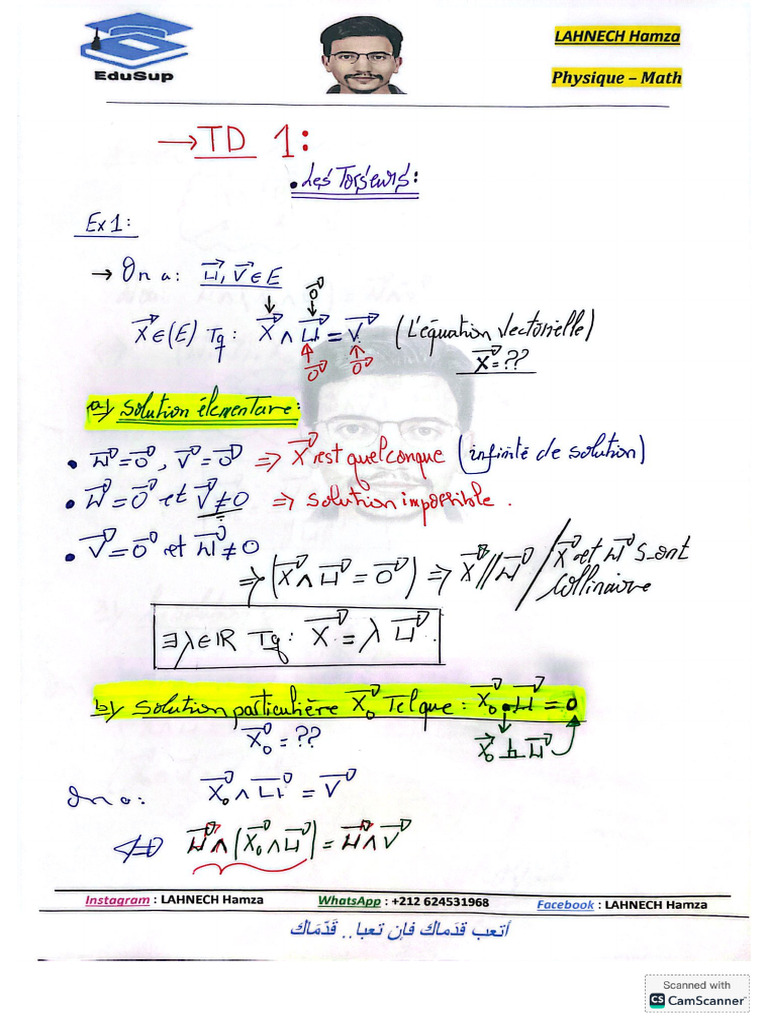 Ex
EduSup
LAHNECH Hamza
Physique – Math
→ TD 1:
• Les Torseurs:
Ex1:
→ On a: u⃗, v⃗ ∈ E
0⃗
X⃗ ∈ (E) Tq: X⃗ ∧ u⃗ = v⃗ (L'équation vectorielle)
0⃗ 0⃗ X⃗ = ??
a) solution élementaire:
• u⃗ = 0⃗, v⃗ = 0⃗ ⇒ X⃗ est quelconque (infinité de solution)
• u⃗ = 0⃗ et v⃗ ≠ 0 ⇒ solution impossible.
• v⃗ = 0⃗ et u⃗ ≠ 0
⇒ (X⃗ ∧ u⃗ = 0⃗) ⇒ X⃗ // u⃗ / X⃗ et u⃗ sont collinaire
∃ λ ∈ IR Tq: X⃗ = λ u⃗.
b) solution particulière X⃗₀ Tel que: X⃗₀ • u⃗ = 0
X⃗₀ = ?? X⃗₀ ⊥ u⃗
On a: X⃗₀ ∧ u⃗ = v⃗
⇔ u⃗ ∧ (X⃗₀ ∧ u⃗) = u⃗ ∧ v⃗
Instagram : LAHNECH Hamza WhatsApp : +212 624531968 Facebook : LAHNECH Hamza
أتعب قدَماك فإن تعبا.. قَدّمَاك
Scanned with
CS CamScanner